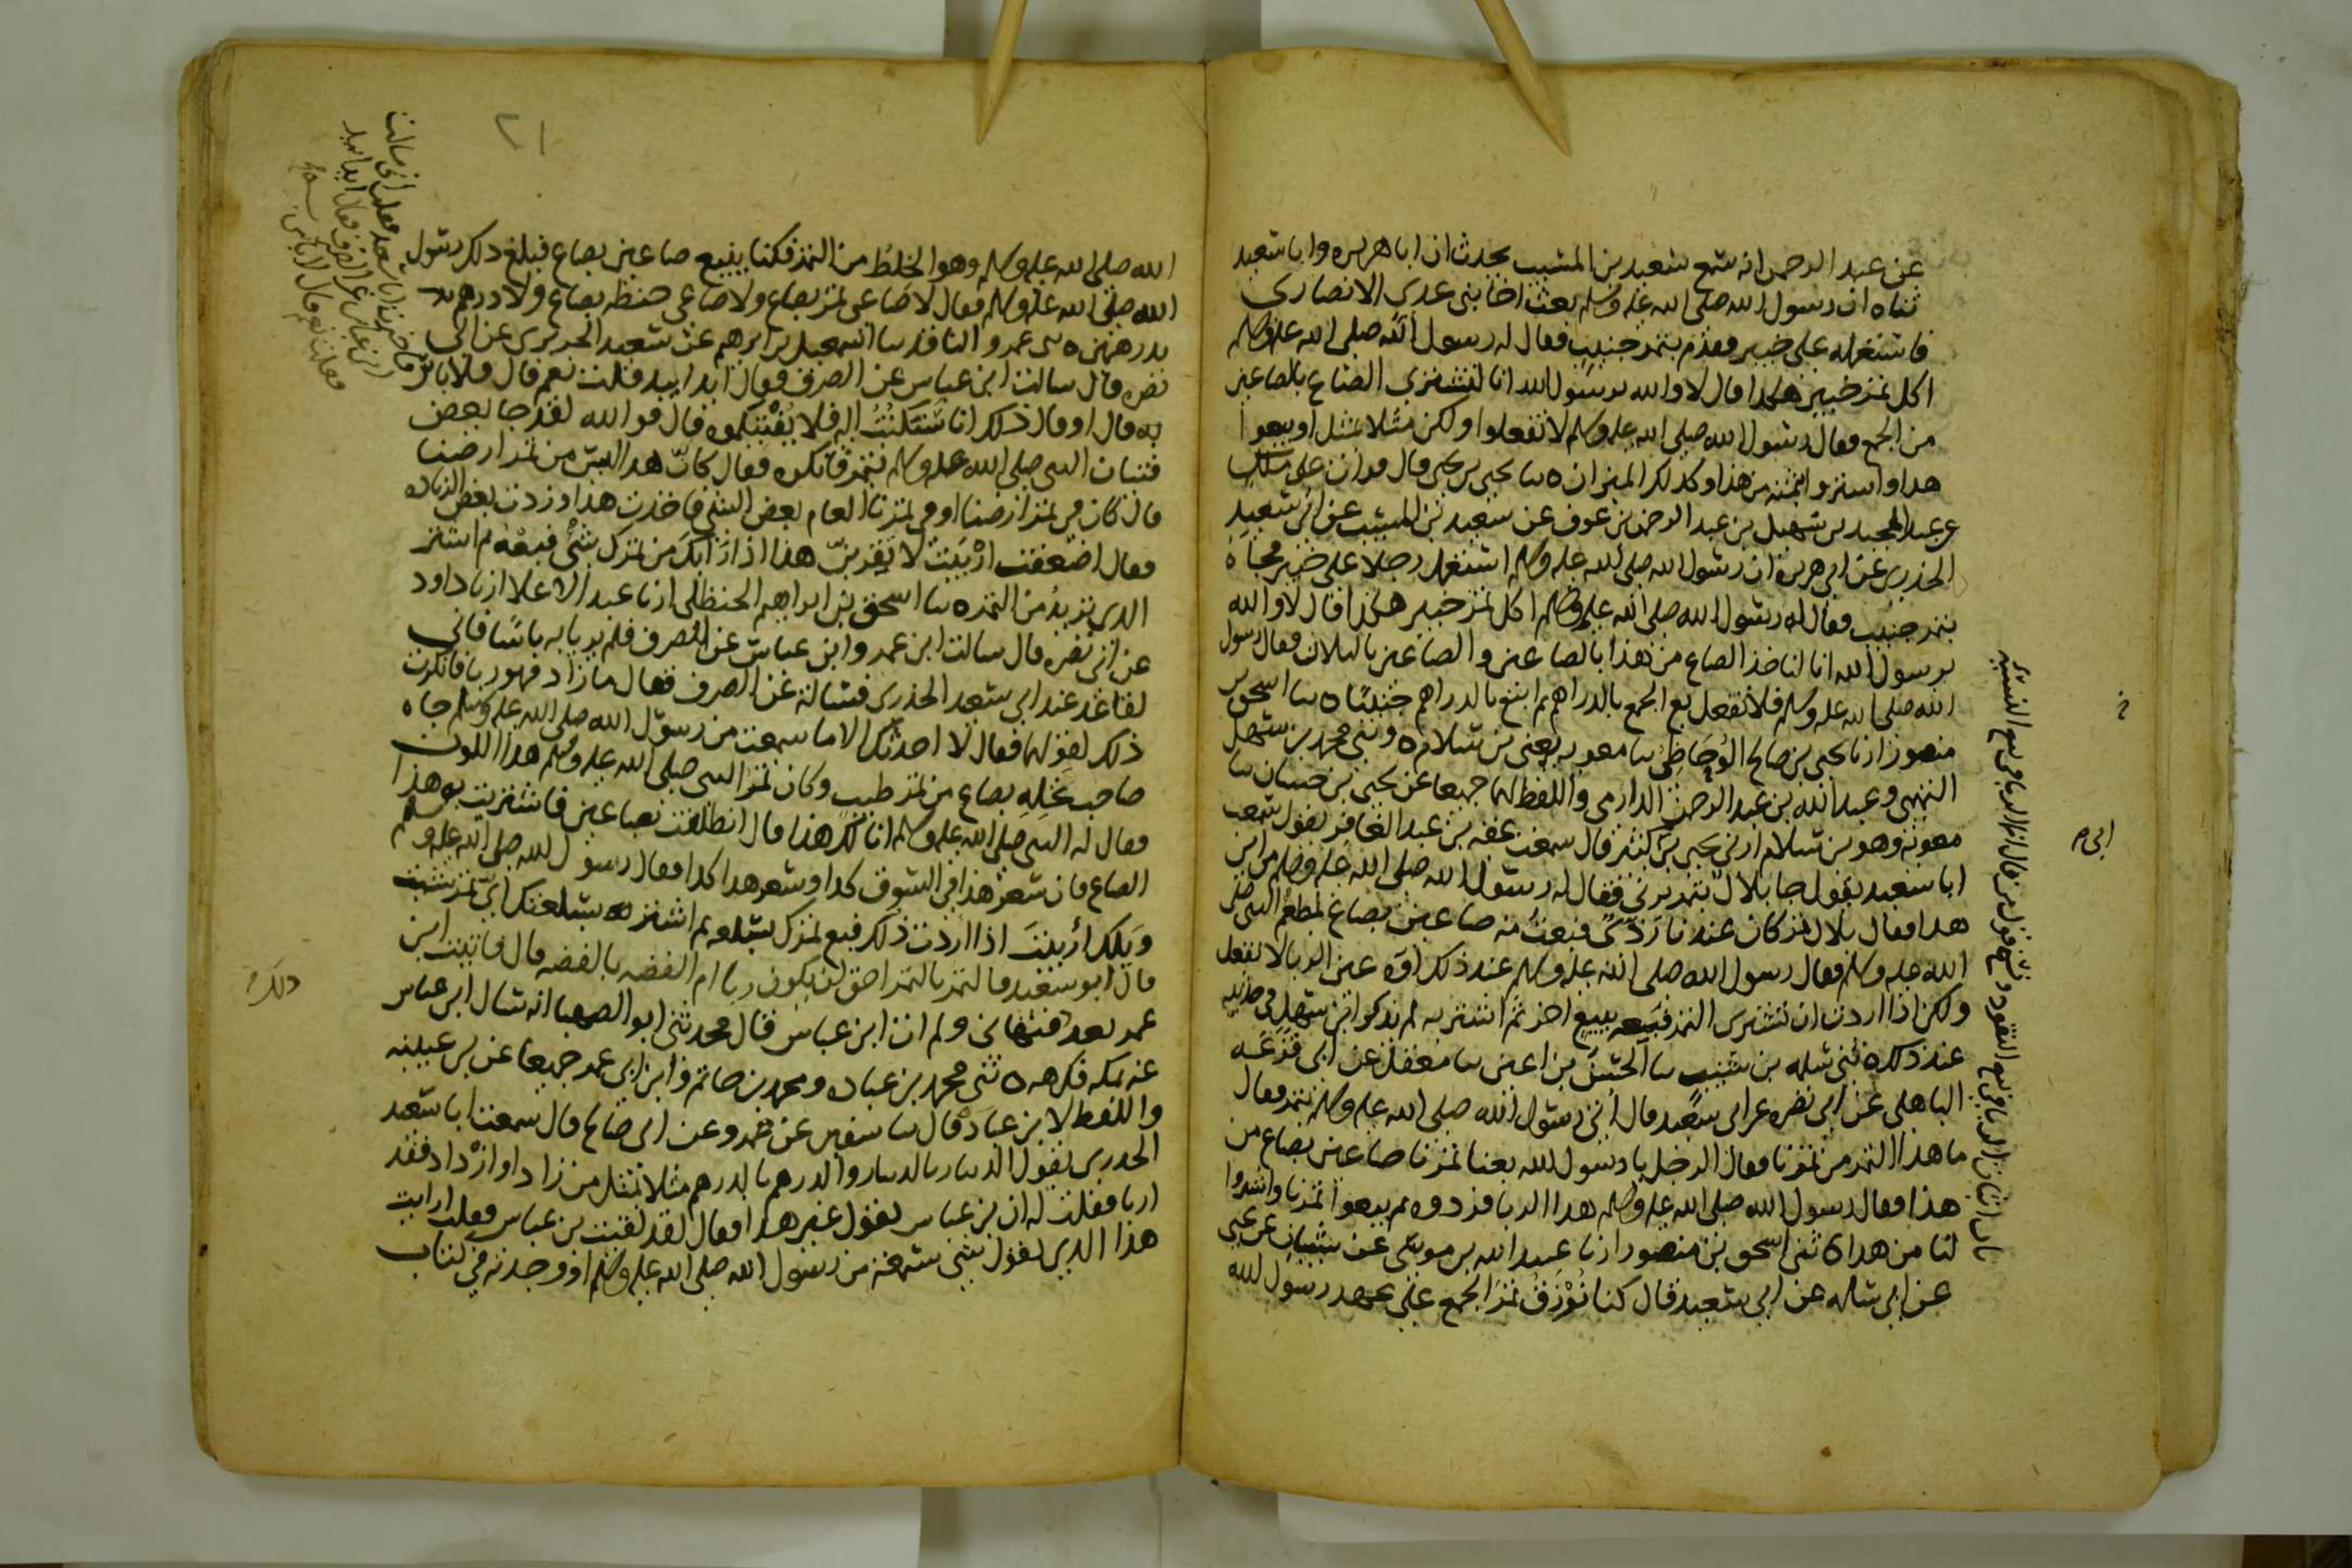 عن عبد الرحمن انه سمع سعيد بن المسيب يحدث ان ابا هريره وابا سعيد
ثناه ان رسول الله صلى الله عليه وسلم بعث اخا بني عدي الانصاري
فاستعمله على خيبر فقدم بتمر جنيب فقال له رسول الله صلى الله عليه وسلم
اكل تمر خيبر هكذا قال لا والله يرسول الله انا لنشتري الصاع بالصاعين
من الجمع فقال رسول الله صلى الله عليه وسلم لا تفعلوا ولكن مثلا بمثل او بيعوا
هذا واشتروا بثمنه من هذا وكذلك الميزان ه نا يحيى بن يحيى قال قرات على ملك
عن عبد المجيد بن سهيل بن عبد الرحمن بن عوف عن سعيد بن المسيب عن ابي سعيد
الخدري عن ابي هريرة ان رسول الله صلى الله عليه وسلم استعمل رجلا على خيبر فجاه
بتمر جنيب فقال له رسول الله صلى الله عليه وسلم اكل تمر خيبر هكذا قال لا والله
يرسول الله انا لناخذ الصاع من هذا بالصاعين والصاعين بالثلاث فقال رسول
الله صلى الله عليه وسلم فلا تفعل بع الجمع بالدراهم ثم ابتع بالدراهم جنيبا ه نا اسحق بن
منصور انا يحيى بن صالح الوحاظي نا معويه يعني بن سلام ه وثني محمد بن سهل
التميمي وعبد الله بن عبد الرحمن الدارمي واللفظ لهما جميعا عن يحيى بن حسان نا
معوية وهو بن سلام اخبرني يحيى بن كثير قال سمعت عقبه بن عبد الغافر يقول سمعت
ابا سعيد يقول جا بلال بتمر برني فقال له رسول الله صلى الله عليه وسلم من اين
هذا فقال بلال تمر كان عندنا ردي فبعت منه صاعين بصاع لمطعم النبي صلى
الله عليه وسلم فقال رسول الله صلى الله عليه وسلم عند ذلك اوه عين الربا لا تفعل
ولكن اذا اردت ان تشتري التمر فبعه ببيع اخر ثم اشتر به لم يذكر ابن سهل في حديثه
عند ذلك ه ثني سلمه بن شبيب نا الحسن بن اعين نا معقل عن ابي قزعه
الباهلي عن ابي نضره عن ابي سعيد قال اتي رسول الله صلى الله عليه وسلم بتمر فقال
ما هذا التمر من تمرنا فقال الرجل يا رسول الله بعنا تمرنا صاعين بصاع من
هذا فقال رسول الله صلى الله عليه وسلم هذا الربا فردوه ثم بيعوا تمرنا واشتروا
لنا من هذا ه ثني اسحق بن منصور انا عبيد الله بن موسى عن شيبان عن يحيى
عن ابي سلمه عن ابي سعيد قال كنا نرزق تمر الجمع على عهد رسول الله
ابي م
الله صلى الله عليه وسلم وهو الخلط من التمر فكنا نبيع صاعين بصاع فبلغ ذلك رسول
الله صلى الله عليه وسلم فقال لا صاعي تمر بصاع ولا صاعي حنطه بصاع ولا درهم
بدرهمين ه ني عمرو الناقد نا اسمعيل بن ابرهيم عن سعيد الجريري عن ابي
نضره قال سالت ابن عباس عن الصرف فقال ايدا بيد قلت نعم قال فلا باس
به قال او قال ذلك انا سنكتب اليه فلا يفتيكموه قال فو الله لقد جا بعض
فتيان النبي صلى الله عليه وسلم بتمر فانكره فقال كان هذا ليس من تمر ارضنا
قال كان في تمر ارضنا او في تمرنا العام بعض الشي فاخذت هذا وزدت بعض الزياده
فقال اضعفت اربيت لا تقربن هذا اذا رابك من تمرك شي فبعه ثم اشتر
الذي تريد من التمر ه نا اسحق بن ابراهيم الحنظلي انا عبد الاعلا انا داود
عن ابي نضره قال سالت ابن عمر وابن عباس عن الصرف فلم يريا به باسا فاني
لقاعد عند ابي سعيد الخدري فسالته عن الصرف فقال ما زاد فهو ربا فانكرت
ذلك لقولهما فقال لا احدثك الا ما سمعت من رسول الله صلى الله عليه وسلم جاه
صاحب نخله بصاع من تمر طيب وكان تمر النبي صلى الله عليه وسلم هذا اللون
فقال له النبي صلى الله عليه وسلم انا لك هذا قال انطلقت بصاعين فاشتريت به هذا
الصاع فان سعر هذا في السوق كذا وسعر هذا كذا فقال رسول الله صلى الله عليه وسلم
ويلك اربيت اذا اردت ذلك فبع تمرك بسلعه ثم اشتر بسلعتك اي تمر شيت
قال ابو سعيد فالتمر بالتمر احق ان يكون ربا ام الفضه بالفضه قال فاتيت ابن
عمر بعد فنهاني ولم ات ابن عباس قال فحدثني ابو الصهبا انه سال ابن عباس
عنه بمكه فكرهه ه ثني محمد بن عباد ومحمد بن حاتم وابن ابي عمر جميعا عن بن عيينه
واللفظ لابن عباد قال نا سفين عن عمرو عن ابي صالح قال سمعت ابا سعيد
الخدري يقول الدينار بالدينار والدرهم بالدرهم مثلا بمثل من زاد او ازداد فقد
اربا فقلت له ان بن عباس يقول غير هذا فقال لقد لقيت بن عباس فقلت ارايت
هذا الذي تقول شي سمعته من رسول الله صلى الله عليه وسلم او وجدته في كتاب
ذلك م
٢١